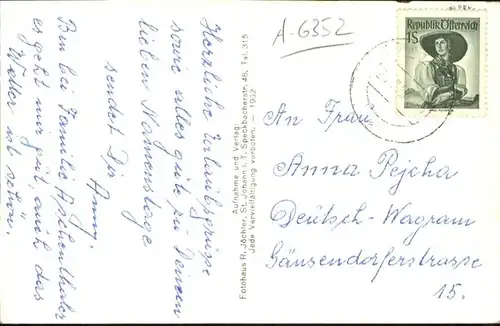 Herzliche Urlaubsgrüsse
sowie alles gute zu Deinem
lieben Namenstage
sendet Dir
Anny
Bin bei Familie Aschenthaler
es geht mir gut, auch das
Wetter ist schön.
Fotohaus R. Jöchler, St. Johann i. T. Speckbacherstr. 48, Tel. 315
Aufnahme und Verlag:
Jede Vervielfältigung verboten. — 1952
A-6352
Republik Österreich
1S
An Frau
Anna Pejcha
Deutsch-Wagram
Gänserndorferstrasse
15.